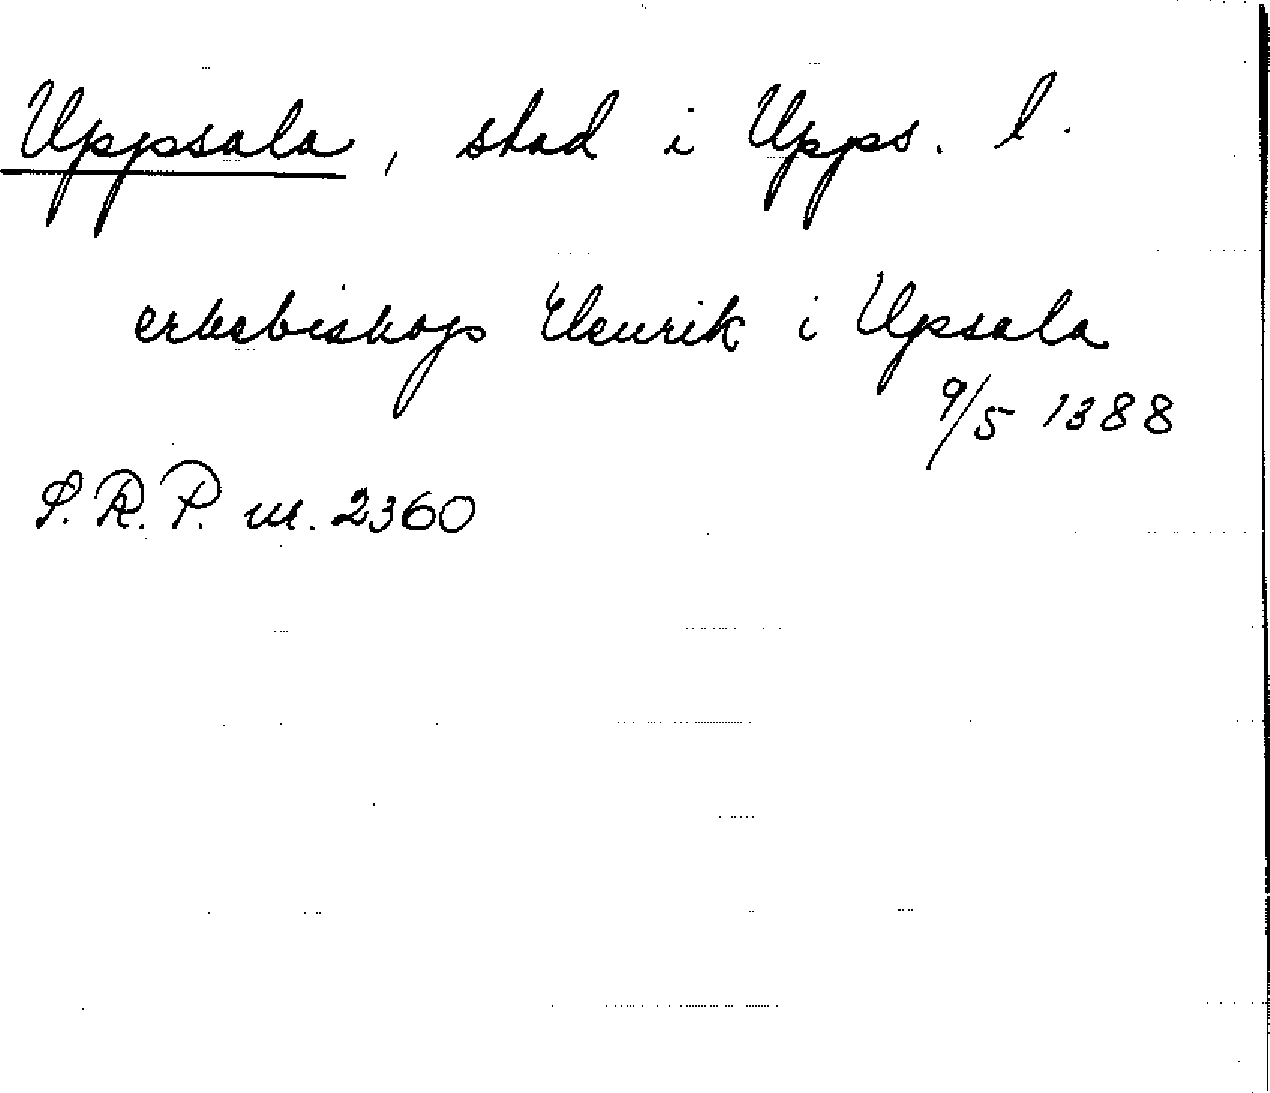 Uppsala, stad i Upps. l.
erkebiskop Henrik i Upsala
9/5 1388
S.R.P. nr. 2360